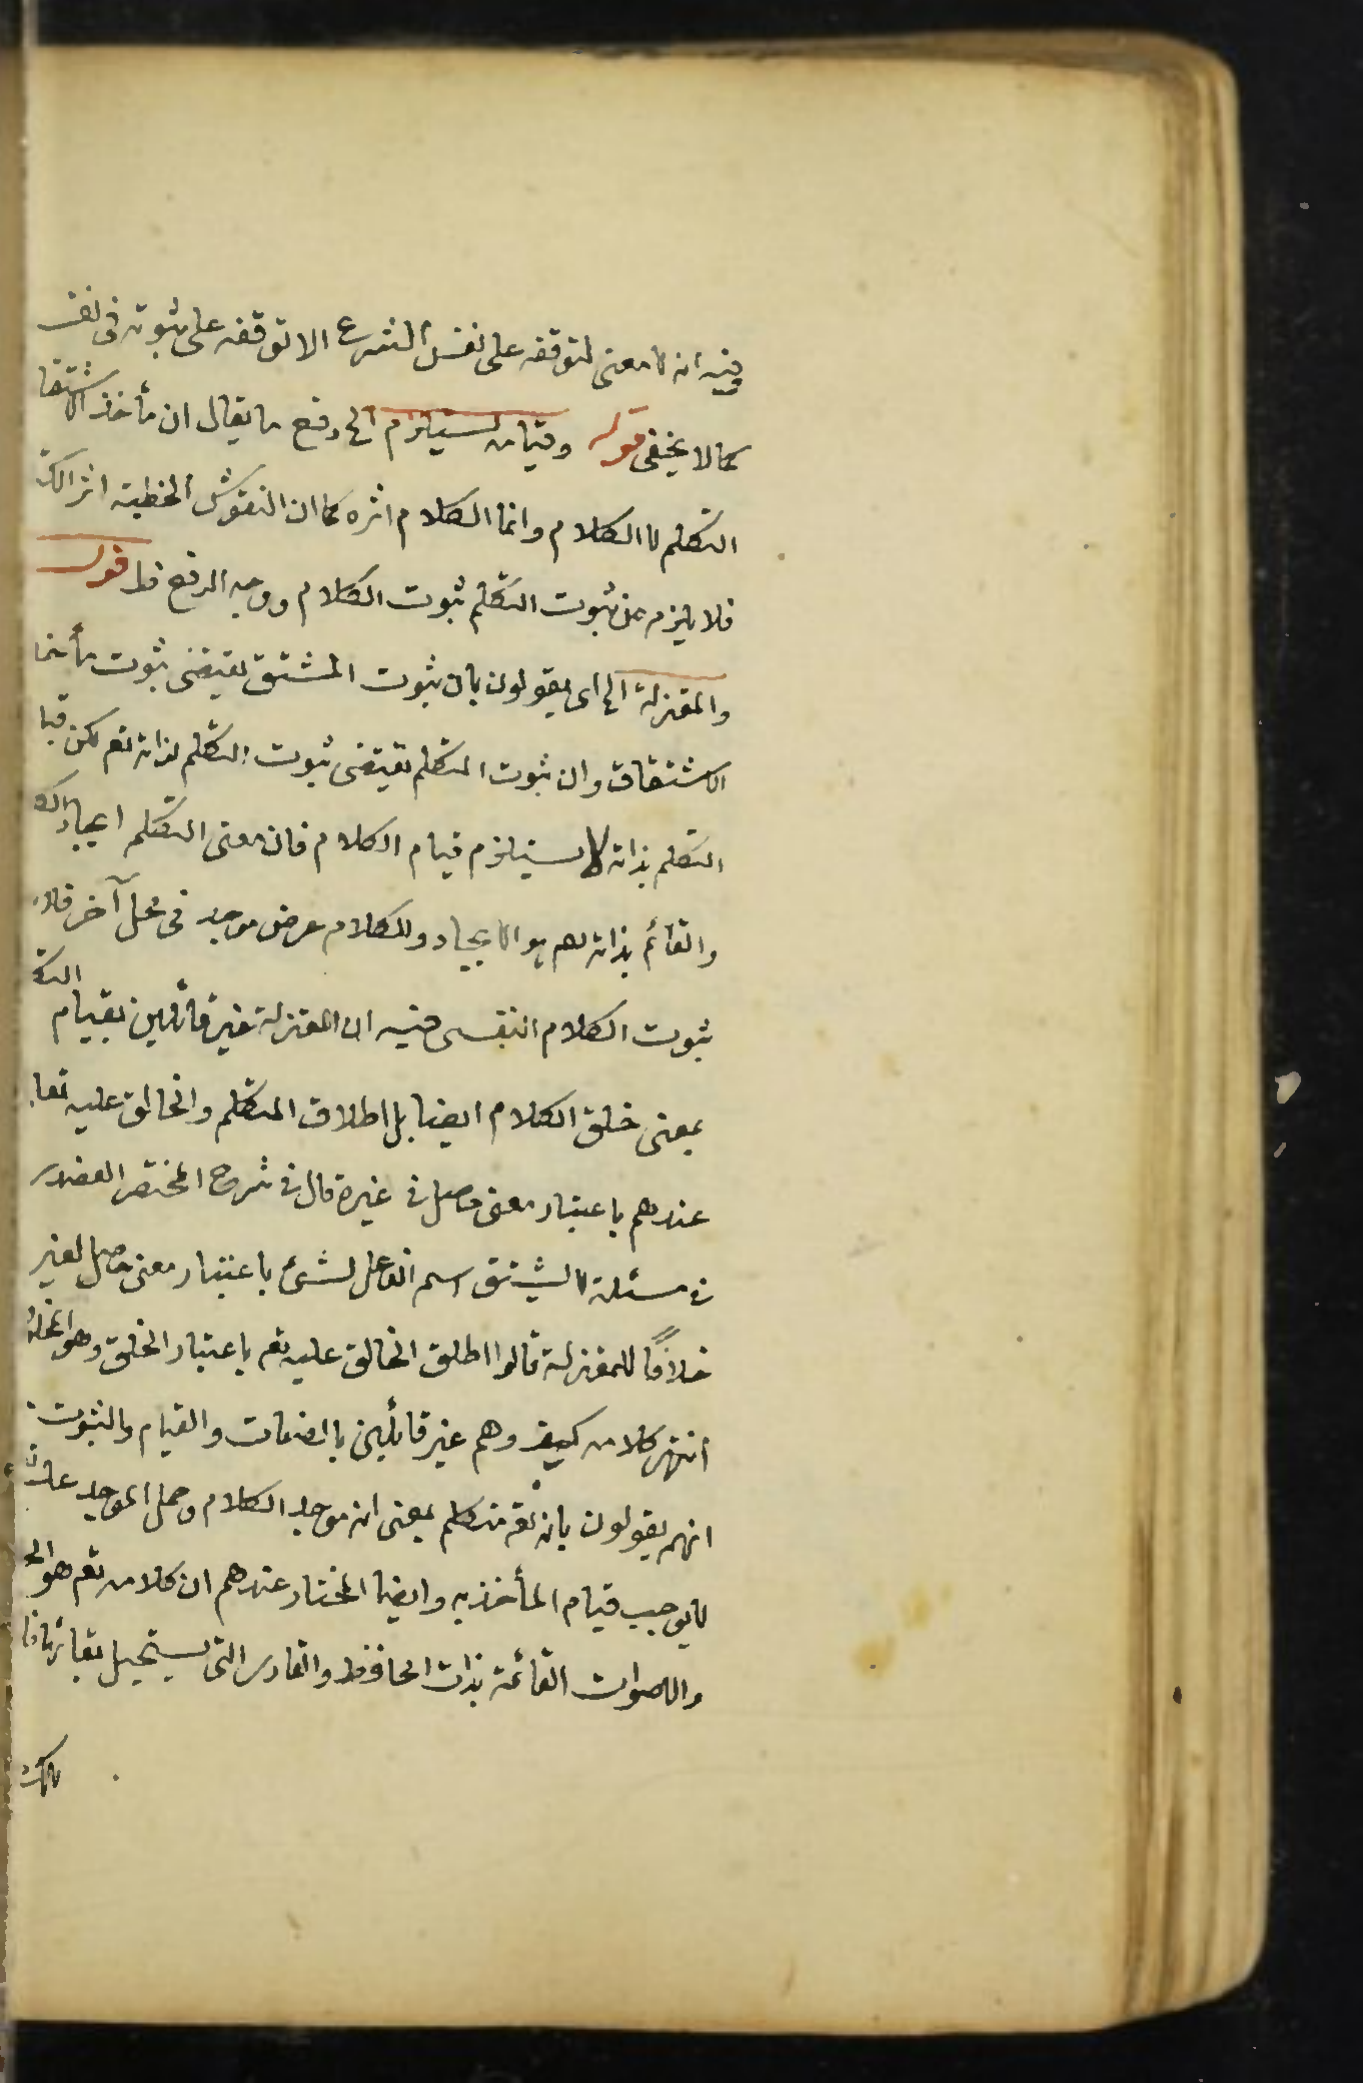 فيه انه لا معنى لتوقفه على نفس الشرع الا توقفه على ثبوته فى نفس
كما لا يخفى قوله وقيامه يستلزم الخ دفع ما يقال ان مأخذ الاشتقا
التكلم لا الكلام وانما الكلام اثره كما ان النقوش الخطية اثر
فلا يلزم من ثبوت التكلم ثبوت الكلام ووجه الدفع ظ قوله
والمعتزلة الخ اى يقولون بان ثبوت المشتق يقتضى ثبوت مأخذ
الاشتقاق وان ثبوت المتكلم يقتضى ثبوت التكلم لذاته تع لكن قيا
التكلم بذاته لا يستلزم قيام الكلام فان معنى التكلم ايجاد
والقائم بذاته تعم هو الايجاد والكلام عرض موجد فى محل آخر فلا
ثبوت الكلام النفسى فيه ان المعتزلة غير قائلين بقيام التك
بمعنى خلق الكلام ايضا بل اطلاق المتكلم والخالق عليه تعا
عندهم باعتبار معنى حاصل فى غيره قال فى شرح المختصر العضدى
فى مسئلة لا يشتق اسم الفاعل لشئ باعتبار معنى حاصل لغير
خلافًا للمعتزلة قالوا اطلق الخالق عليه تعم باعتبار الخلق وهو المخلو
انتهى كلامه كيف وهم غير قائلين بالصفات والقيام والثبوت
انهم يقولون بانه تع متكلم بمعنى انه موجد الكلام وحمل الموجد
لا يوجب قيام المأخذ به وايضا المختار عندهم ان كلامه تعم هو
والاصوات القائمة بذات الحافظ والقارى التى يستحيل بقائها